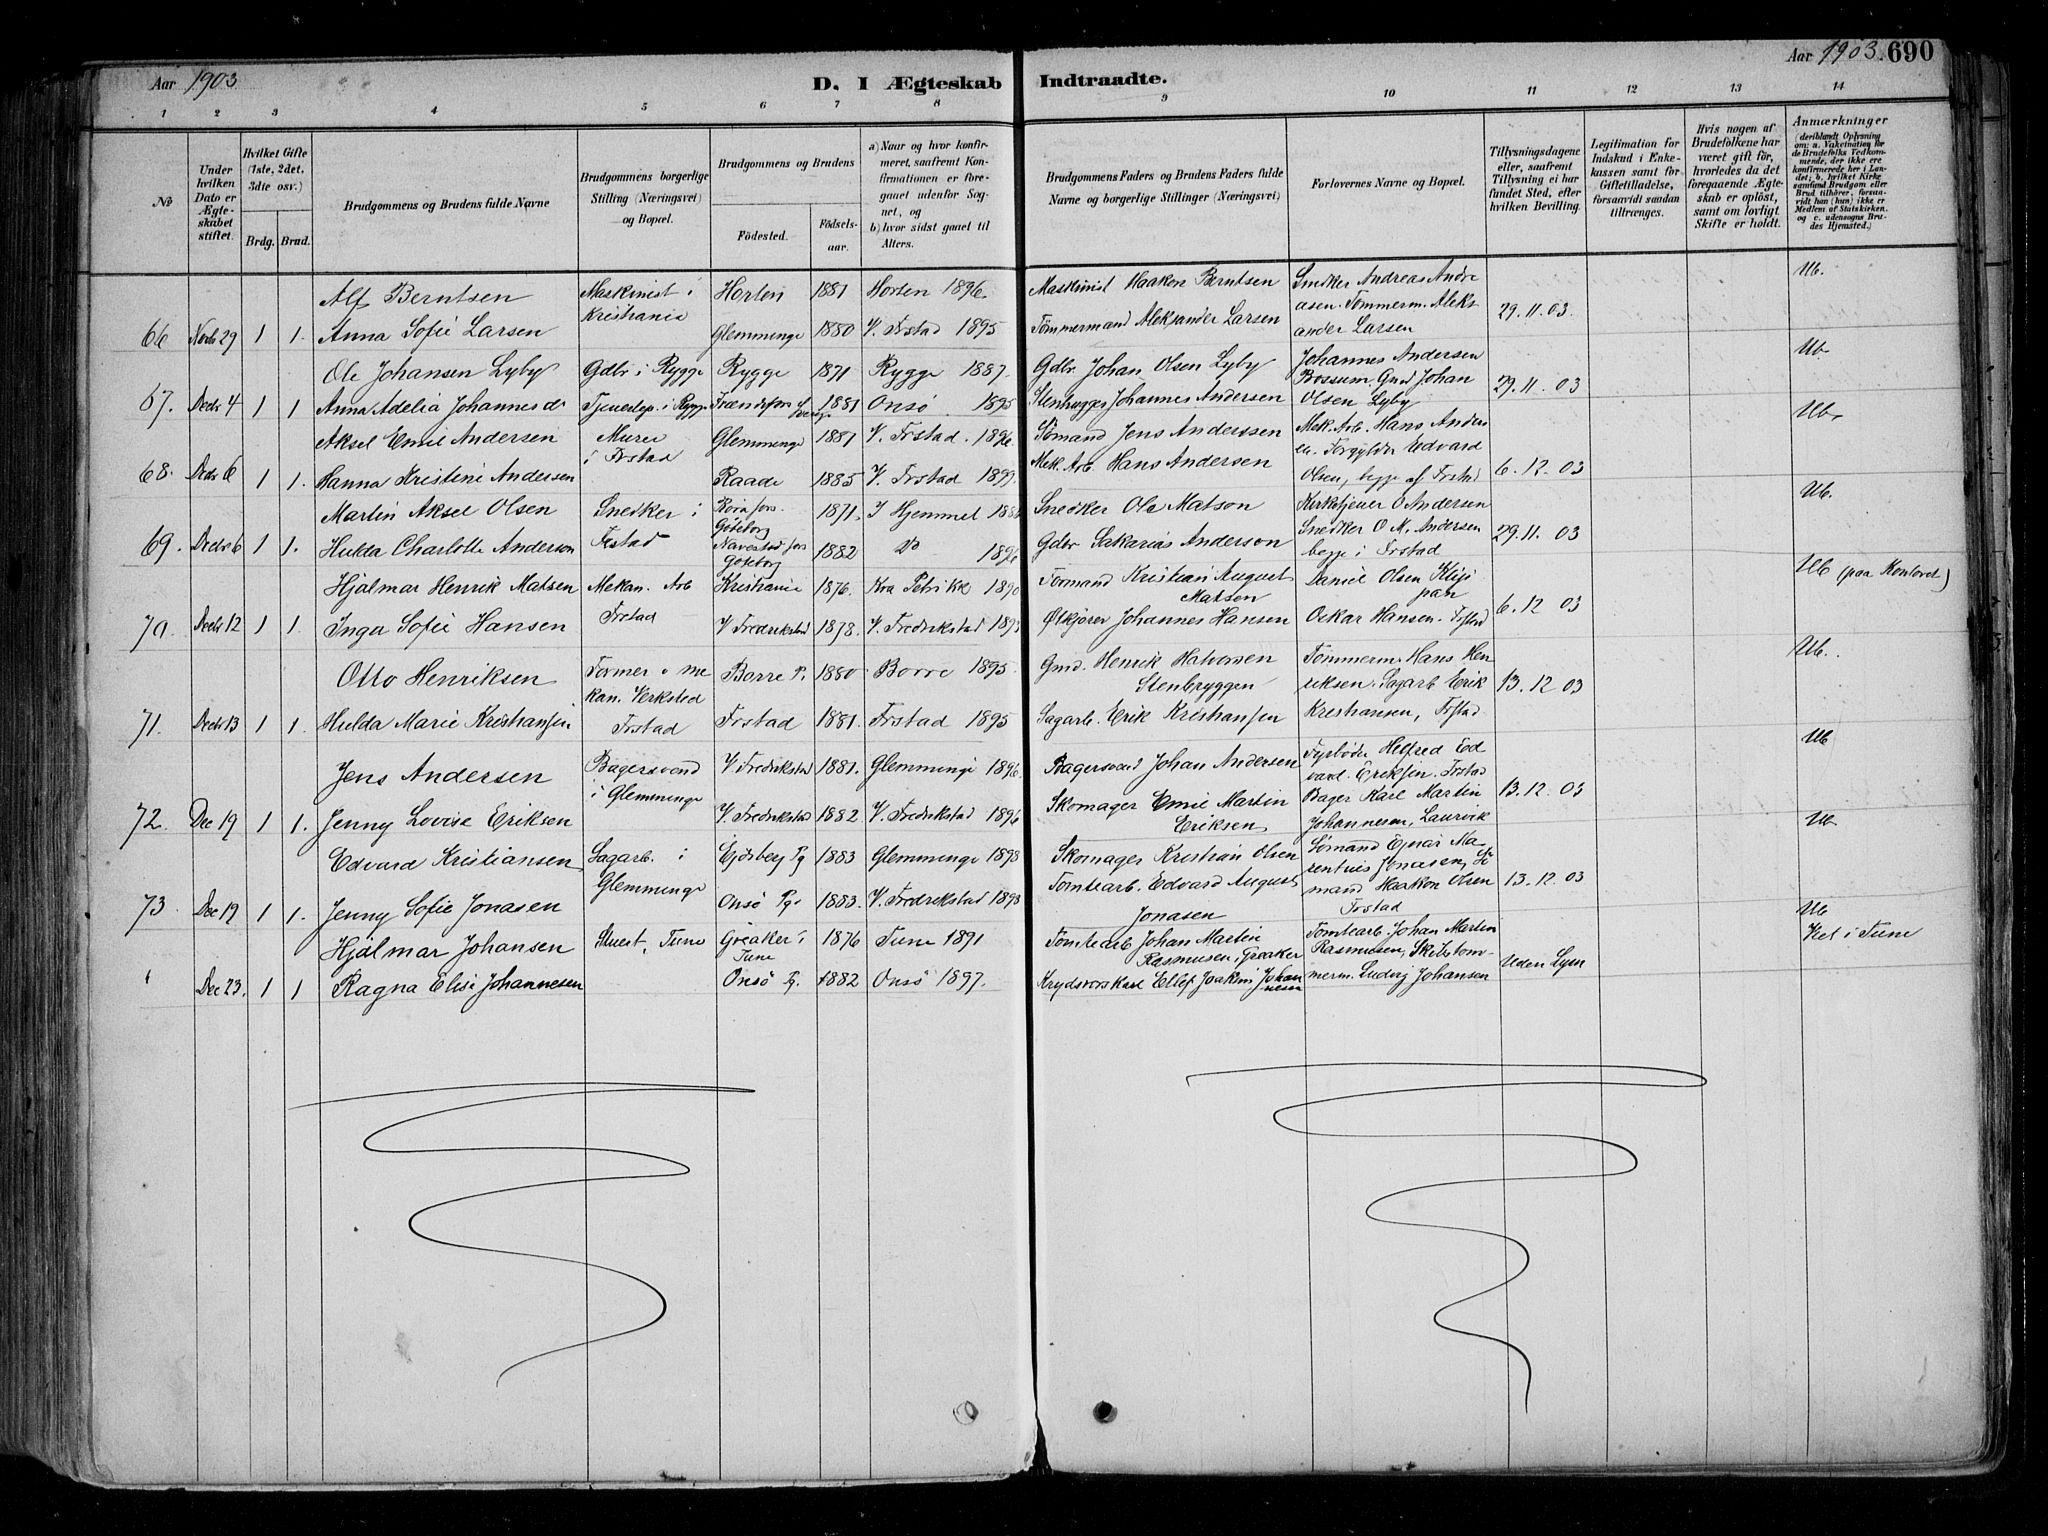 Aar 1903
D. I Ægteskab Indtraadte.
Aar 1903. 690
1 2 3 4 5 6 7 8 9 10 11 12 13 14
No
Under hvilken Dato er Ægteskabet stiftet.
Hvilket Gifte (1ste, 2det, 3die osv.)
Brdg. Brud.
Brudgommens og Brudens fulde Navne
Brudgommens borgerlige Stilling (Næringsvei) og Bopæl.
Brudgommens og Brudens
Fødested. Fødselsaar.
a) Naar og hvor konfirmeret, saafremt Konfirmationen er foregaaet udenfor Sognet, og
b) hvor sidst gaaet til Alters.
Brudgommens Faders og Brudens Faders fulde Navne og borgerlige Stillinger (Næringsvei)
Forlovernes Navne og Bopæl.
Tillysningsdagene eller, saafremt Tillysning ei har fundet Sted, efter hvilken Bevilling.
Legitimation for Indskud i Enkekassen samt for Giftetilladelse, forsaavidt saadan tiltrænges.
Hvis nogen af Brudefolkene har været gift før, hvorledes da det foregaaende Ægteskab er opløst, samt om lovligt Skifte er holdt.
Anmærkninger
(deriblandt Oplysning om: a. Vaksination for de Brudefolks Vedkommende, der ikke ere konfirmerede her i Landet; b. hvilket Kirkesamfund Brudgom eller Brud tilhører, forsaavidt han (hun) ikke er Medlem af Statskirken. og c. udensogns Brudes Hjemsted.)
Alf Berntsen Maskinist i Kristiania Horten 1881 Horten 1896. Maskinist Haakon Berntsen Snedker Andreas Andreasen. Tømmerm. Aleksander Larsen Ub.
66 Novbr 29 1 1. Anna Sofie Larsen Glemminge 1880 V. Frstad 1895 Tømmermand Aleksander Larsen 29.11.03.
Ole Johansen Lyby Gdbr i Rygge Rygge 1871 Rygge 1887. Gdbr. Johan Olsen Lyby Johannes Andersen Bossum, Gmd Johan Olsen Lyby Ub
67. Decbr 4 1 1 Anna Adelia Johannesd. Tjenestep. i Rygge 1881 Onsø 1895 Stenhugger Johannes Andersen 29.11.03
Aksel Emil Andersen Murer i Frstad Glemminge 1881 V. Frstad. 1896. Sømand Jens Anderssen Mek. Arb. Hans Andersen. Forgylder Edvard Olsen, begge af Frstad Ub.
68. Decbr 6 1 1. Hanna Kristine Andersen Raade 1885 V. Frstad 1899 Mek. Arb Hans Andersen 6.12.03
Martin Aksel Olsen Snedker i Frstad Göteborg 1871. I Hjemmet Snedker Ole Matson Kirketjener O Andersen Snedker O. M. Andersen begge i Frstad Ub.
69. Decbr 6 1 1. Hulda Charlotte Anderson Göteborg 1882 Do 1896 Gdbr Sakarias Anderson 29.11.03
Hjalmar Henrik Matsen Mekan. Arb Frstad Kristiania 1876. Kra Petri Kk 1890 Formand Kristian August Matsen Daniel Olsen Ub (paa Kontoret)
70. Decbr 12 1 1. Inga Sofie Hansen V Fredrikstad 1878. V. Fredrikstad 1893 Ølkjører Johannes Hansen Oskar Hansen. Frstad 6.12 03
Otto Henriksen Former v mekan. Verksted Frstad Borre P. 1880 Borre 1895 Gmd. Henrik Halvorsen Stenbryggen Tømmerm. Hans Henriksen. Sagarb Erik Kristiansen, Frstad Ub.
71. Decbr 13 1 1. Hulda Marie Kristiansen Frstad 1881. Frstad 1895 Sagarb. Erik Kristiansen 13.12 03
Jens Andersen Bagersvend i Glemminge V. Fredrikstad 1881. Glemminge 1896. Bagersvend Johan Andersen Fyrbøder Helfred Edvard Eriksen. Frstad Bager Karl Martin Johannesen, Laurvik Ub
72. Dec 19 1 1. Jenny Lovise Eriksen V. Fredrikstad 1882 V. Fredrikstad 1896 Skomager Emil Martin Eriksen 13.12.03
Edvard Kristiansen Sagarb. i Glemminge Eidsberg Pg 1883 Glemminge 1898 Skomager Kristian Olsen Sømand Ejnar Marentius Jonasen, Sømand Haakon Olsen Frstad Ub
73. Dec 19 1 1. Jenny Sofie Jonasen Onsø Pg. 1883. V. Fredrikstad 1898 Tomtearb. Edvard August Jonasen 13.12.03
Hjalmar Johansen Stuert, Tune Greaker i Tune 1876 Tune 1891 Tomtearb Johan Martin Rasmusen, Greaker Tomtearb. Johan Martin Rasmusen, Skibstømmerm. Ludvig Johansen Ub Viet i Tune
" Dec 23. 1 1 Ragna Elise Johannesen Onsø Pg. 1882 Onsø 1897. Krydsvorskarl Ellef Joakim Johannesen Uden Lysn